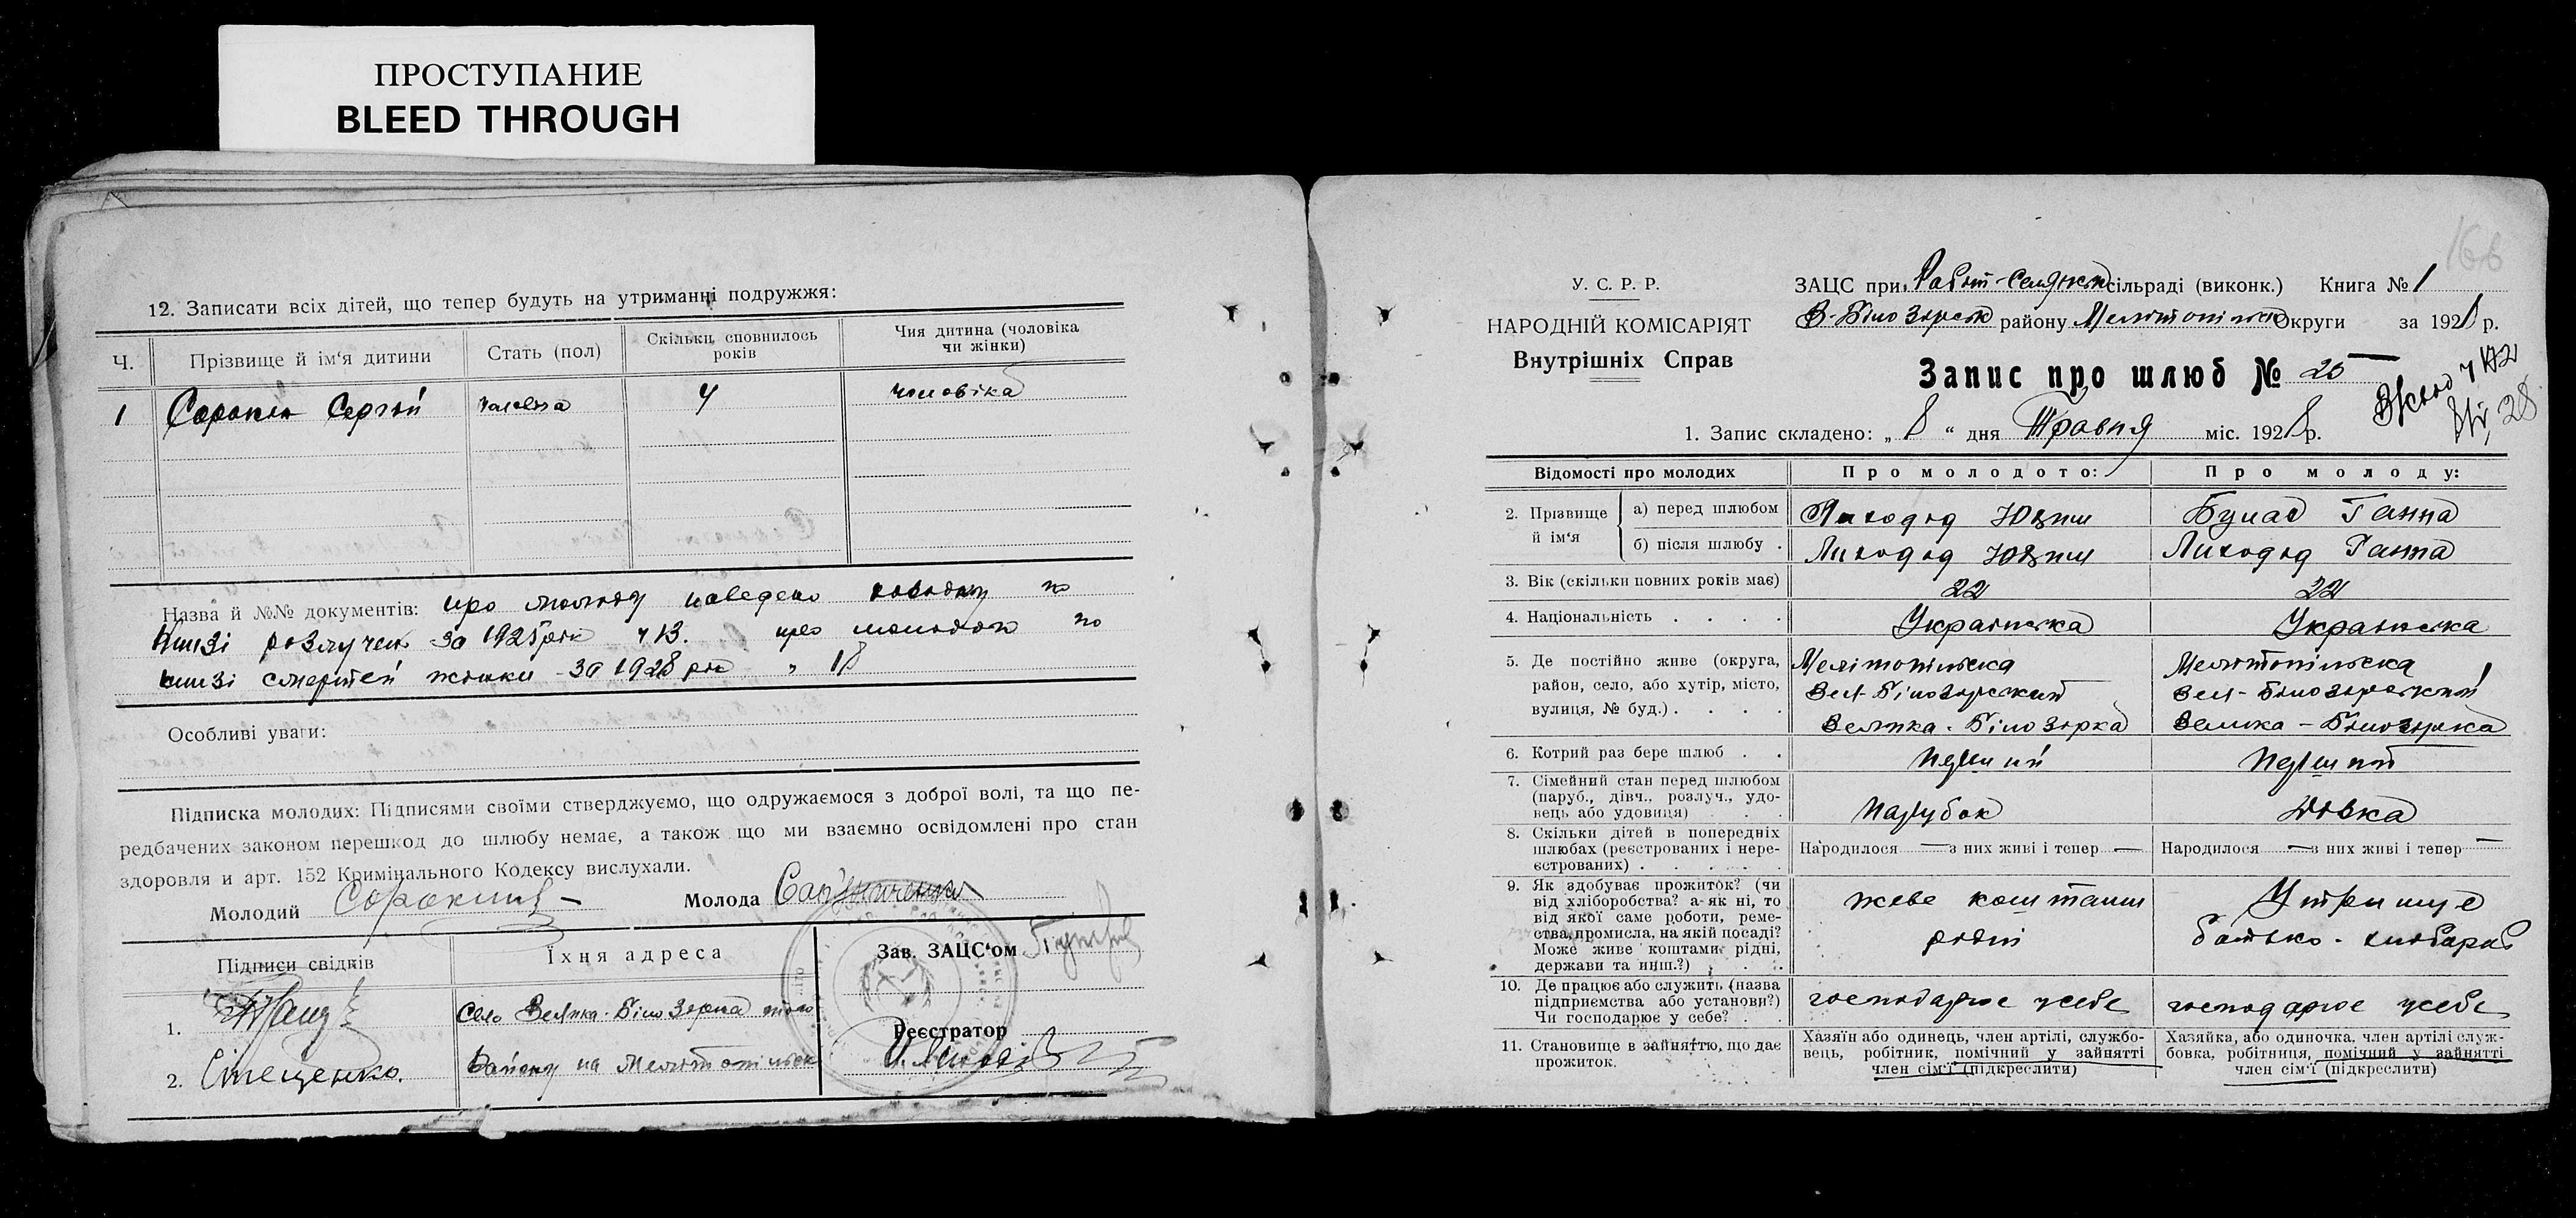 ПРОСТУПАНИЕ
BLEED THROUGH
12. Записати всіх дітей, що тепер будуть на утриманні подружжя:
Ч. Прізвище й ім'я дитини Стать (пол) Скільки сповнилось років Чия дитина (чоловіка чи жінки)
1 Сорокін Сергій 4 чоловіка
Назва й №№ документів: про молоду наведено по
книзі розлучень за 1925 рік ч 13. про молодого по
книзі смертей жінки за 1928 рік " 18
Особливі уваги:
Підписка молодих: Підписями своїми стверджуємо, що одружаємося з доброї волі, та що пе-
редбачених законом перешкод до шлюбу немає, а також що ми взаємно освідомлені про стан
здоровля и арт. 152 Кримінального Кодексу вислухали.
Молодий Сорокин Молода
Підписи свідків Їхня адреса Зав. ЗАЦС'ом
1. Село Велика-Білозерка того
Реєстратор
2. Стеценко. Району на Мелітопільск
У. С. Р. Р.
НАРОДНІЙ КОМІСАРІЯТ
Внутрішніх Справ
ЗАЦС при сільраді (виконк.) Книга № 1
В-Білозерськ району Мелітопільск Округи за 1928 р.
Запис про шлюб № 20
1. Запис складено: „ 8 " дня Травня міс. 1928 р.
Відомості про молодих Про молодого: Про молоду:
2. Прізвище й ім'я
а) перед шлюбом Лиходід Юхим Булас Ганна
б) після шлюбу . Лиходід Юхим Лиходід Ганна
3. Вік (скільки повних років має) 22 22
4. Національність . . . . Українська Українська
5. Де постійно живе (округа, Мелітопільска Мелітопільска
район, село, або хутір, місто, Вел-Білозерский Вел-Білозерский
вулиця, № буд.) . . . . Велика-Білозерка Велика-Білозерка
6. Котрий раз бере шлюб . . Перший Перший
7. Сімейний стан перед шлюбом
(паруб., дівч., розлуч., удо-
вець або удовиця) . . . Парубок Дівка
8. Скільки дітей в попередніх
шлюбах (реєстрованих і нере-
єстрованих) . . . . . Народилося — з них живі і тепер — Народилося — з них живі і тепер —
9. Як здобуває прожиток? (чи
від хліборобства? а як ні, то
від якої саме роботи, реме-
ства, промисла, на якій посаді?
Може живе коштами рідні,
держави та инш.?) . . . живе коштами рідні Утримує батько-хлібороб
10. Де працює або служить (назва
підприємства або установи?)
Чи господарює у себе? . . господарює у себе господарює у себе
11. Становище в зайняттю, що дає
прожиток.
Хазяїн або одинець, член артілі, службо-
вець, робітник, помічний у зайнятті
член сім'ї (підкреслити)
Хазяйка, або одиночка, член артілі служ-
бовка, робітниця, помічний у зайнятті
член сім'ї (підкреслити)